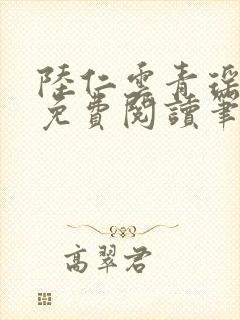 陸仁雲青瑶
免費閱讀筆
高翠君